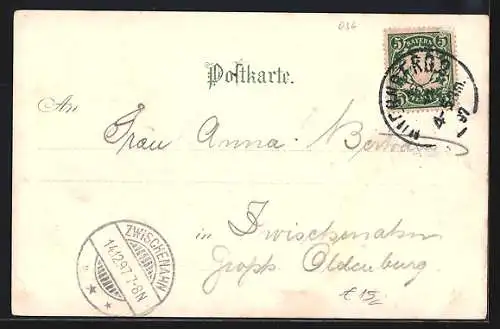 036
5 BAYERN 5
Postkarte.
An
Frau Anna
in Zwischenahn
Grossh. Oldenburg.
ZWISCHENAHN
14.12.97. 7-8N
* *
£ 15,-